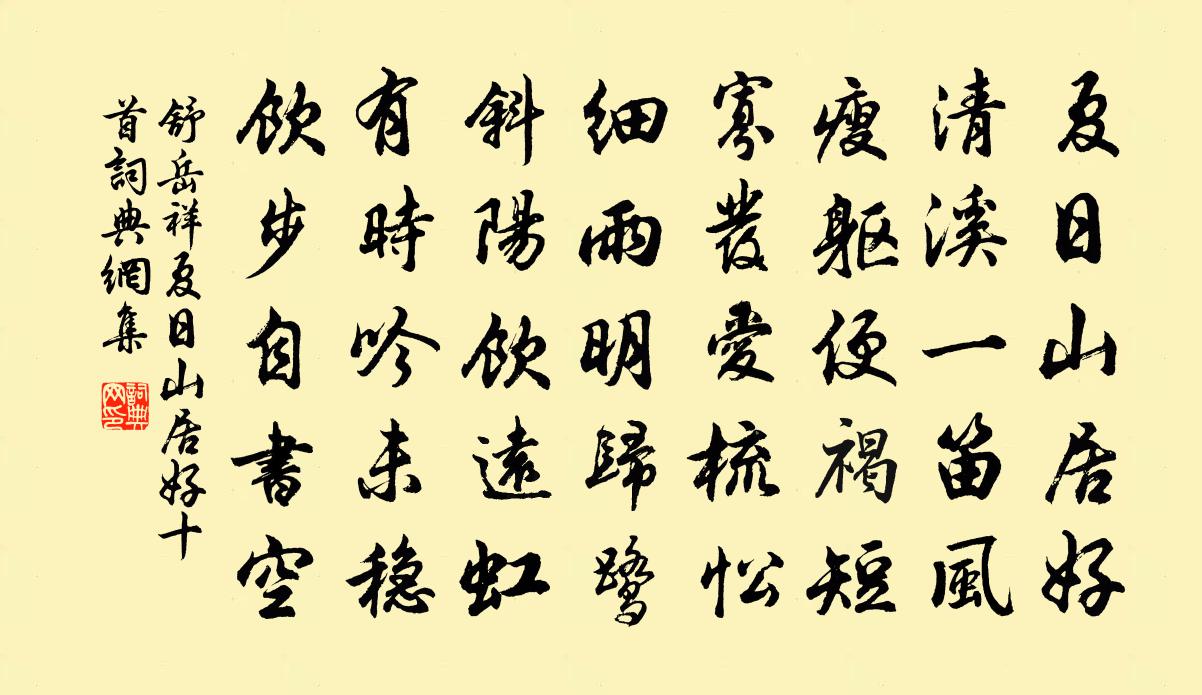 夏日山居好
清溪一笛風
瘦軀便褐短
寡發愛梳忪
細雨明歸鷺
斜陽飲遠虹
有時吟未稳
飲步自書空
舒岳祥夏日山居好十
首詞典網集
詞典网印